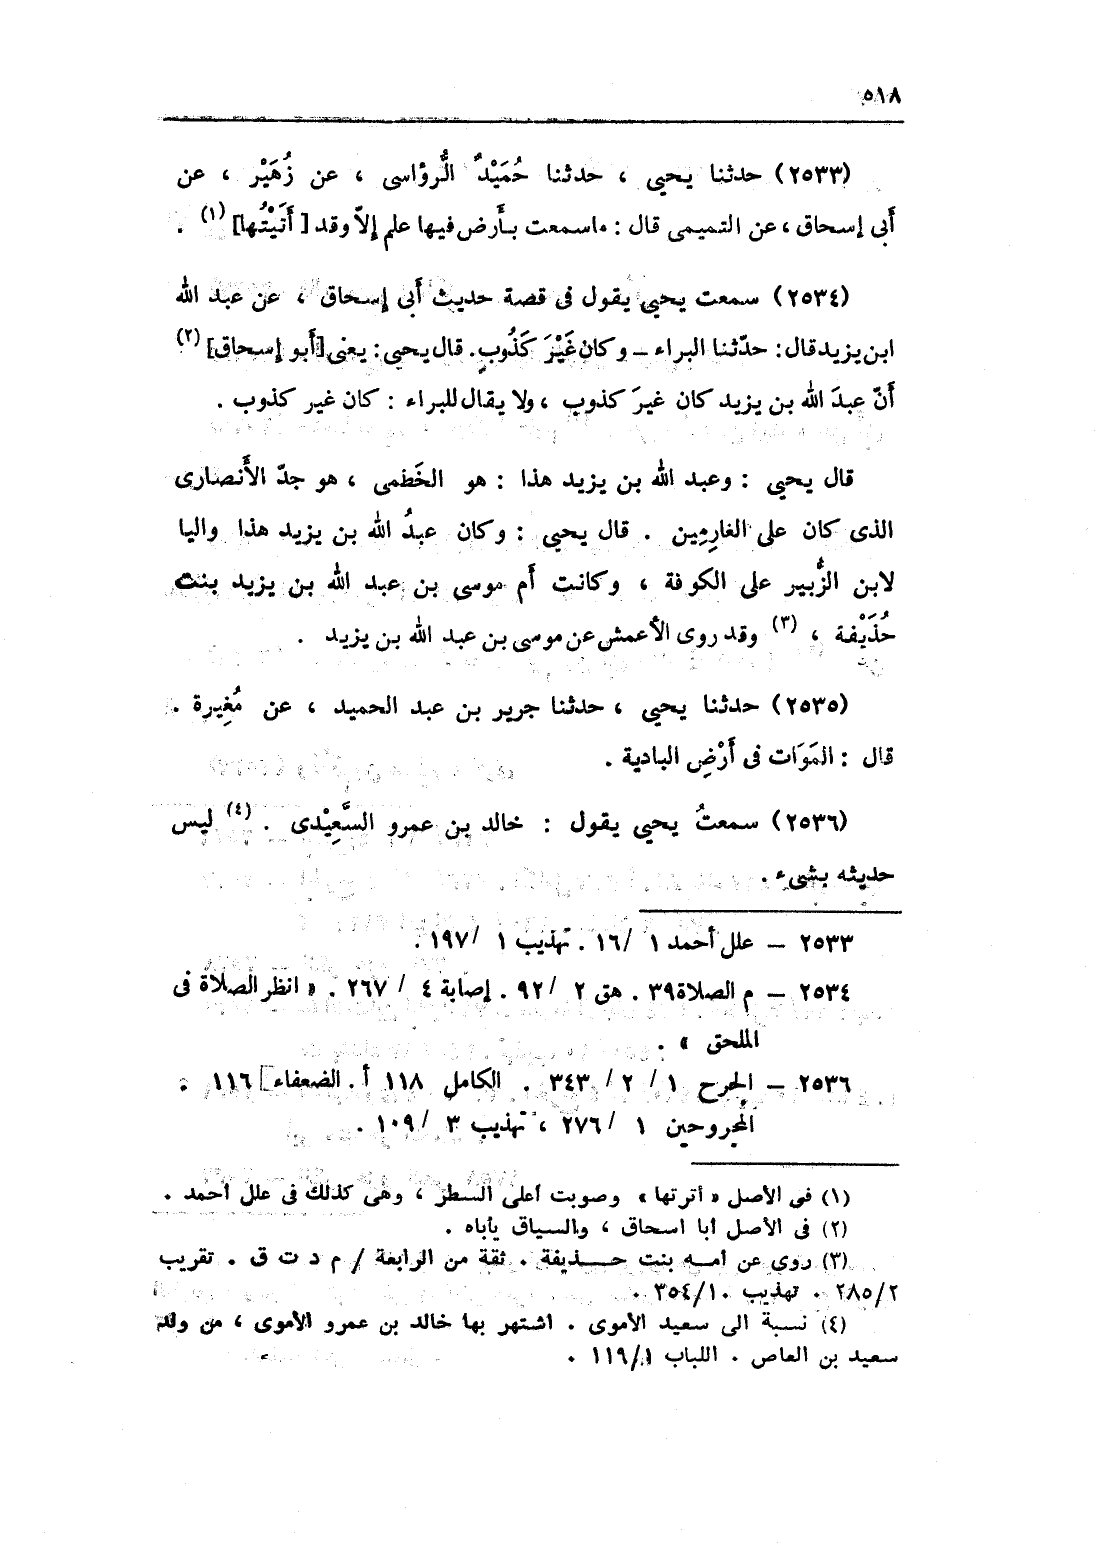 ٥١٨
(٢٥٣٣) حدثنا يحيى ، حدثنا حُمَيْدٌ الرُّؤاسى ، عن زُهَيْر ، عن
أَبى إسحاق ، عن التميمى قال : ماسمعت بأَرض فيها علم إلاّ وقد [ أَتَيْتُها] (١) .
(٢٥٣٤) سمعت يحيى يقول فى قصة حديث أَبى إسحاق ، عن عبد الله
ابن يزيد قال : حدّثنا البراء – وكان غَيْرَ كَذُوبٍ. قال يحيى : يعنى [أَبو إسحاق] (٢)
أَنّ عبدَ الله بن يزيد كان غيرَ كذوب ، ولا يقال للبراء : كان غير كذوب .
قال يحيى : وعبد الله بن يزيد هذا : هو الخَطمى ، هو جدّ الأَنصارى
الذى كان على الغارِمِين . قال يحيى : وكان عبدُ الله بن يزيد هذا واليا
لابن الزُّبير على الكوفة ، وكانت أَم موسى بن عبد الله بن يزيد بنت
حُذَيْفة ، (٣) وقد روى الأَعمش عن موسى بن عبد الله بن يزيد .
(٢٥٣٥) حدثنا يحيى ، حدثنا جرير بن عبد الحميد ، عن مُغِيرة .
قال : المَوَات فى أَرْضِ البادية .
(٢٥٣٦) سمعتُ يحيى يقول : خالد بن عمرو السَّعِيْدى . (٤) ليس
حديثه بشىء .
٢٥٣٣ – علل أحمد ١ /١٦ . تهذيب ١ /١٩٧ .
٢٥٣٤ – م الصلاة ٣٩ . هق ٢ /٩٢ . إصابة ٤ / ٢٦٧ . « انظر الصلاة فى
الملحق » .
٢٥٣٦ – الجرح ١ / ٢ / ٣٤٣ . الكامل ١١٨ أ . الضعفاء ] ١١٦ .
المجروحين ١ /٢٧٦ ، تهذيب ٣ /١٠٩ .
(١) فى الأصل « أترتها » وصوبت أعلى السطر ، وهى كذلك فى علل أحمد .
(٢) فى الأصل أبا اسحاق ، والسياق يأباه .
(٣) روى عن أمه بنت حذيفة . ثقة من الرابعة / م د ت ق . تقريب
٢٨٥/٢ . تهذيب ٣٥٤/١٠ .
(٤) نسبة الى سعيد الأموى . اشتهر بها خالد بن عمرو الأموى ، من ولد
سعيد بن العاص . اللباب ١١٩/١ .